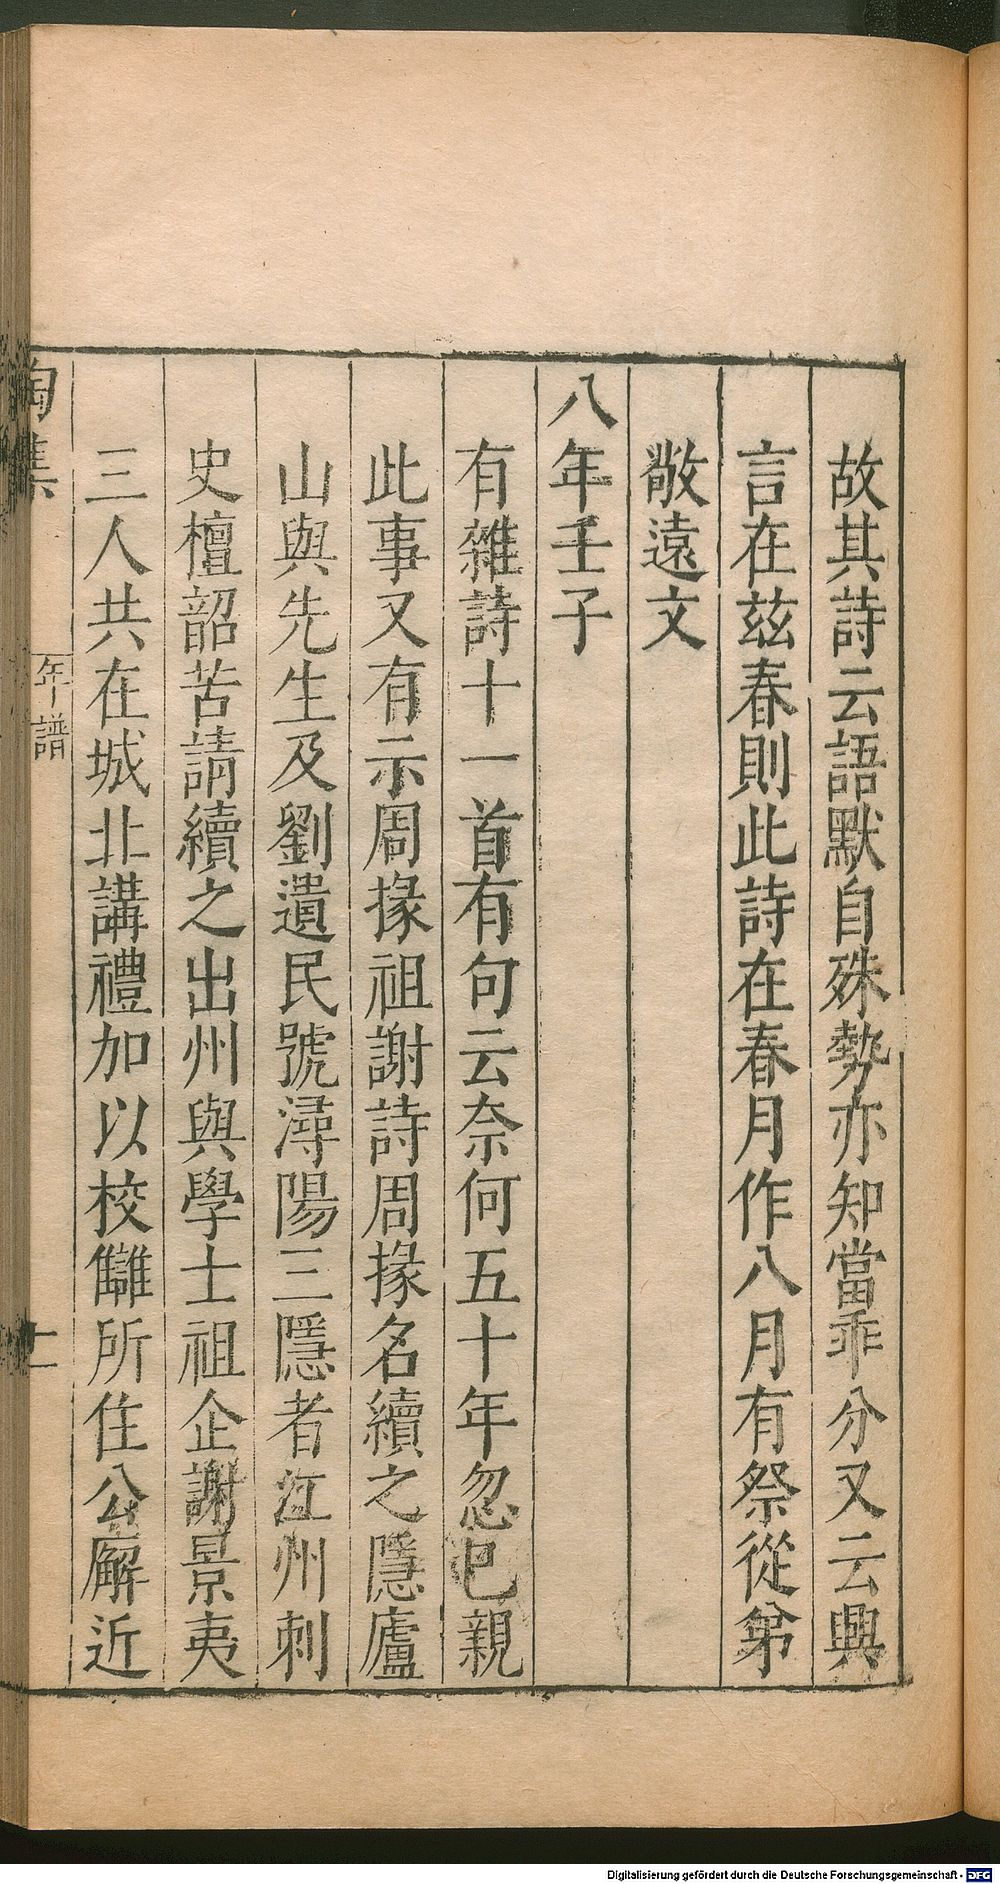 故其詩云語默自殊勢亦知當乖分又云興
言在茲春則此詩在春月作八月有祭從弟
敬遠文
八年壬子
有雜詩十一首有句云奈何五十年忽巳親
此事又有示周掾祖謝詩周掾名續之隱廬
山與先生及劉遺民號潯陽三隱者江州刺
史檀韶苦請續之出州與學士祖企謝景夷
三人共在城北講禮加以校讎所住公廨近
陶集
年譜
十一
Digitalisierung gefördert durch die Deutsche Forschungsgemeinschaft - DFG